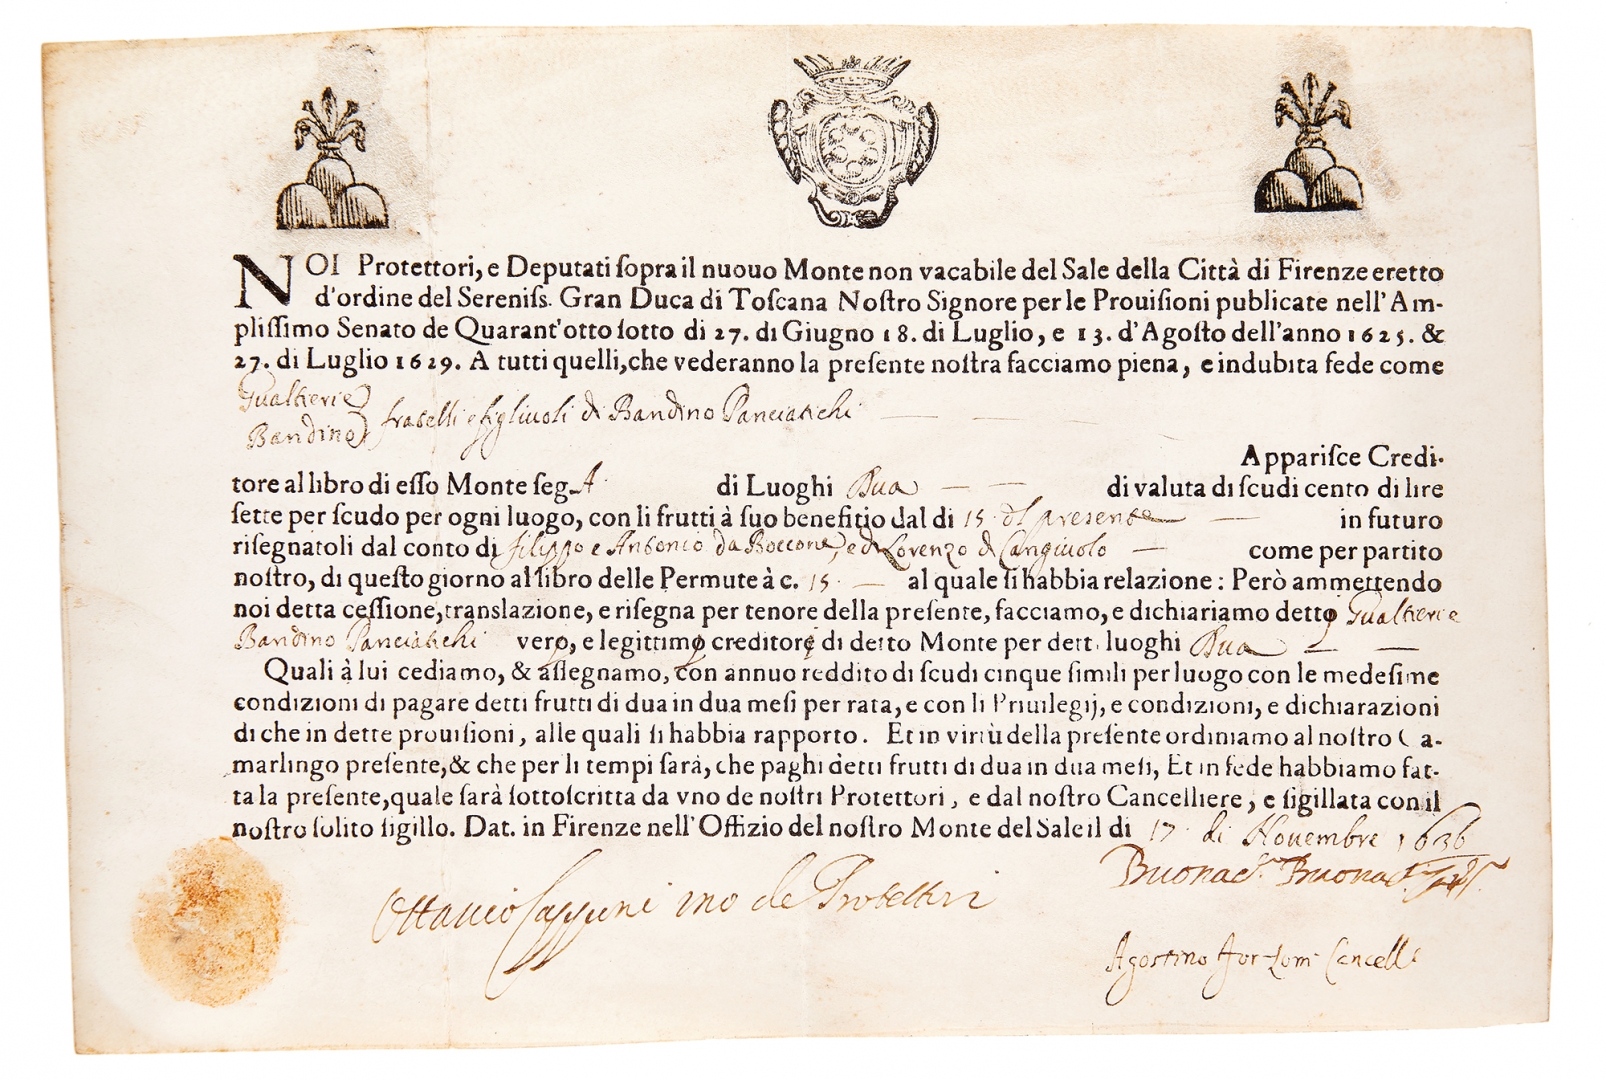 NOI Protettori, e Deputati ſopra il nuouo Monte non vacabile del Sale della Città di Firenze eretto
d'ordine del Sereniſs. Gran Duca di Toſcana Noſtro Signore per le Prouiſioni publicate nell'Am-
pliſſimo Senato de Quarant'otto ſotto di 27. di Giugno 18. di Luglio, e 13. d'Agoſto dell'anno 1625. &
27. di Luglio 1629. A tutti quelli, che vederanno la preſente noſtra facciamo piena, e indubita fede come
Gualtieri e
Bandino fratelli e figliuoli di Bandino Panciatichi
Appariſce Credi-
tore al libro di eſſo Monte ſeg. A di Luoghi Dua di valuta di ſcudi cento di lire
ſette per ſcudo per ogni luogo, con li frutti à ſuo benefitio dal di 15 del presente in futuro
riſegnatoli dal conto di filippo e Antonio da Boccone, e di Lorenzo di come per partito
noſtro, di queſto giorno al libro delle Permute à c. 15. al quale ſi habbia relazione: Però ammettendo
noi detta ceſſione, translazione, e riſegna per tenore della preſente, facciamo, e dichiariamo detto Gualtieri e
Bandino Panciatichi vero, e legittimo creditore di detto Monte per dett. luoghi Dua
Quali à lui cediamo, & aſſegnamo, con annuo reddito di ſcudi cinque ſimili per luogo con le medeſime
condizioni di pagare detti frutti di dua in dua meſi per rata, e con li Priuilegij, e condizioni, e dichiarazioni
di che in dette prouiſioni, alle quali ſi habbia rapporto. Et in virtù della preſente ordiniamo al noſtro Ca-
marlingo preſente, & che per li tempi ſarà, che paghi detti frutti di dua in dua meſi, Et in fede habbiamo fat-
ta la preſente, quale ſarà ſottoſcritta da vno de noſtri Protettori, e dal noſtro Cancelliere, e ſigillata con il
noſtro ſolito ſigillo. Dat. in Firenze nell'Offizio del noſtro Monte del Sale il di 17. di Nouembre 1636
Ottauio Capponi uno de Protettori
Agostino Cancell.